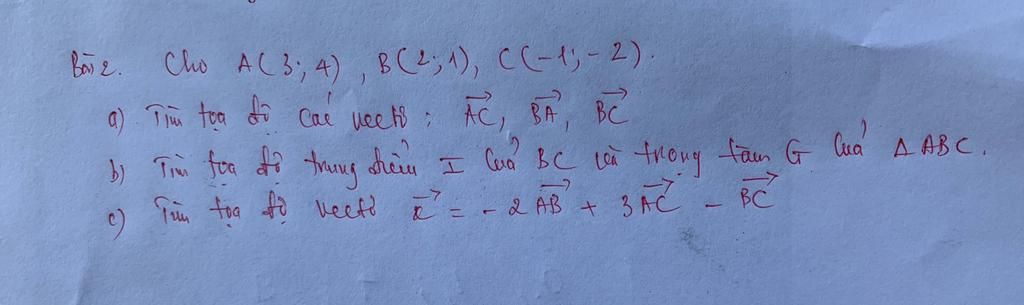 Bài 2. Cho A(3; 4), B(2; 1), C(-1; -2).
a) Tìm tọa độ các vectơ: $\overrightarrow{AC}$, $\overrightarrow{BA}$, $\overrightarrow{BC}$
b) Tìm tọa độ trung điểm I của BC và trọng tâm G của Δ ABC.
c) Tìm tọa độ vectơ $\overrightarrow{x}$ = -2$\overrightarrow{AB}$ + 3$\overrightarrow{AC}$ - $\overrightarrow{BC}$